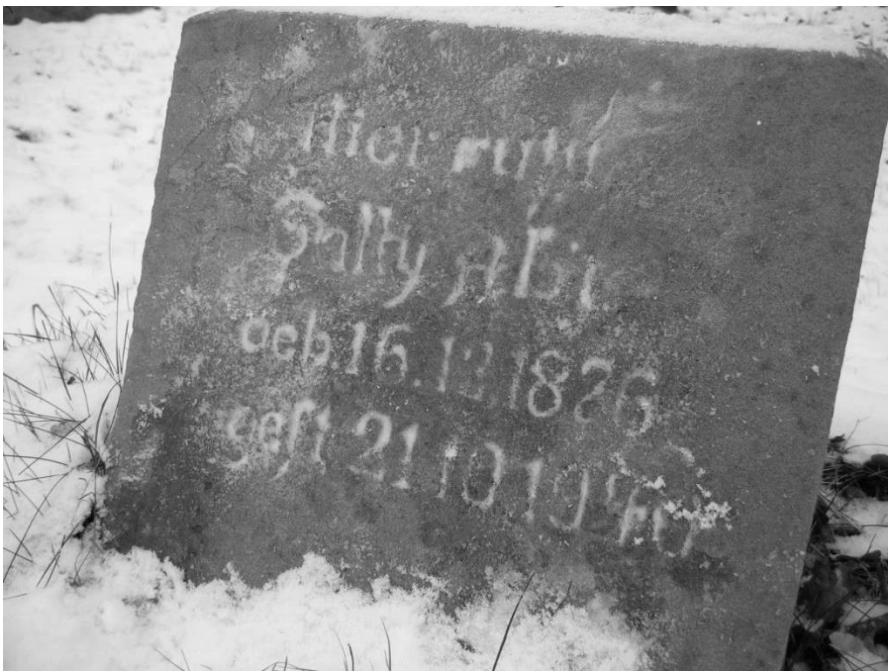 Hier ruht
Sally Abt
geb. 16.12.1876
gest 21 10 1940